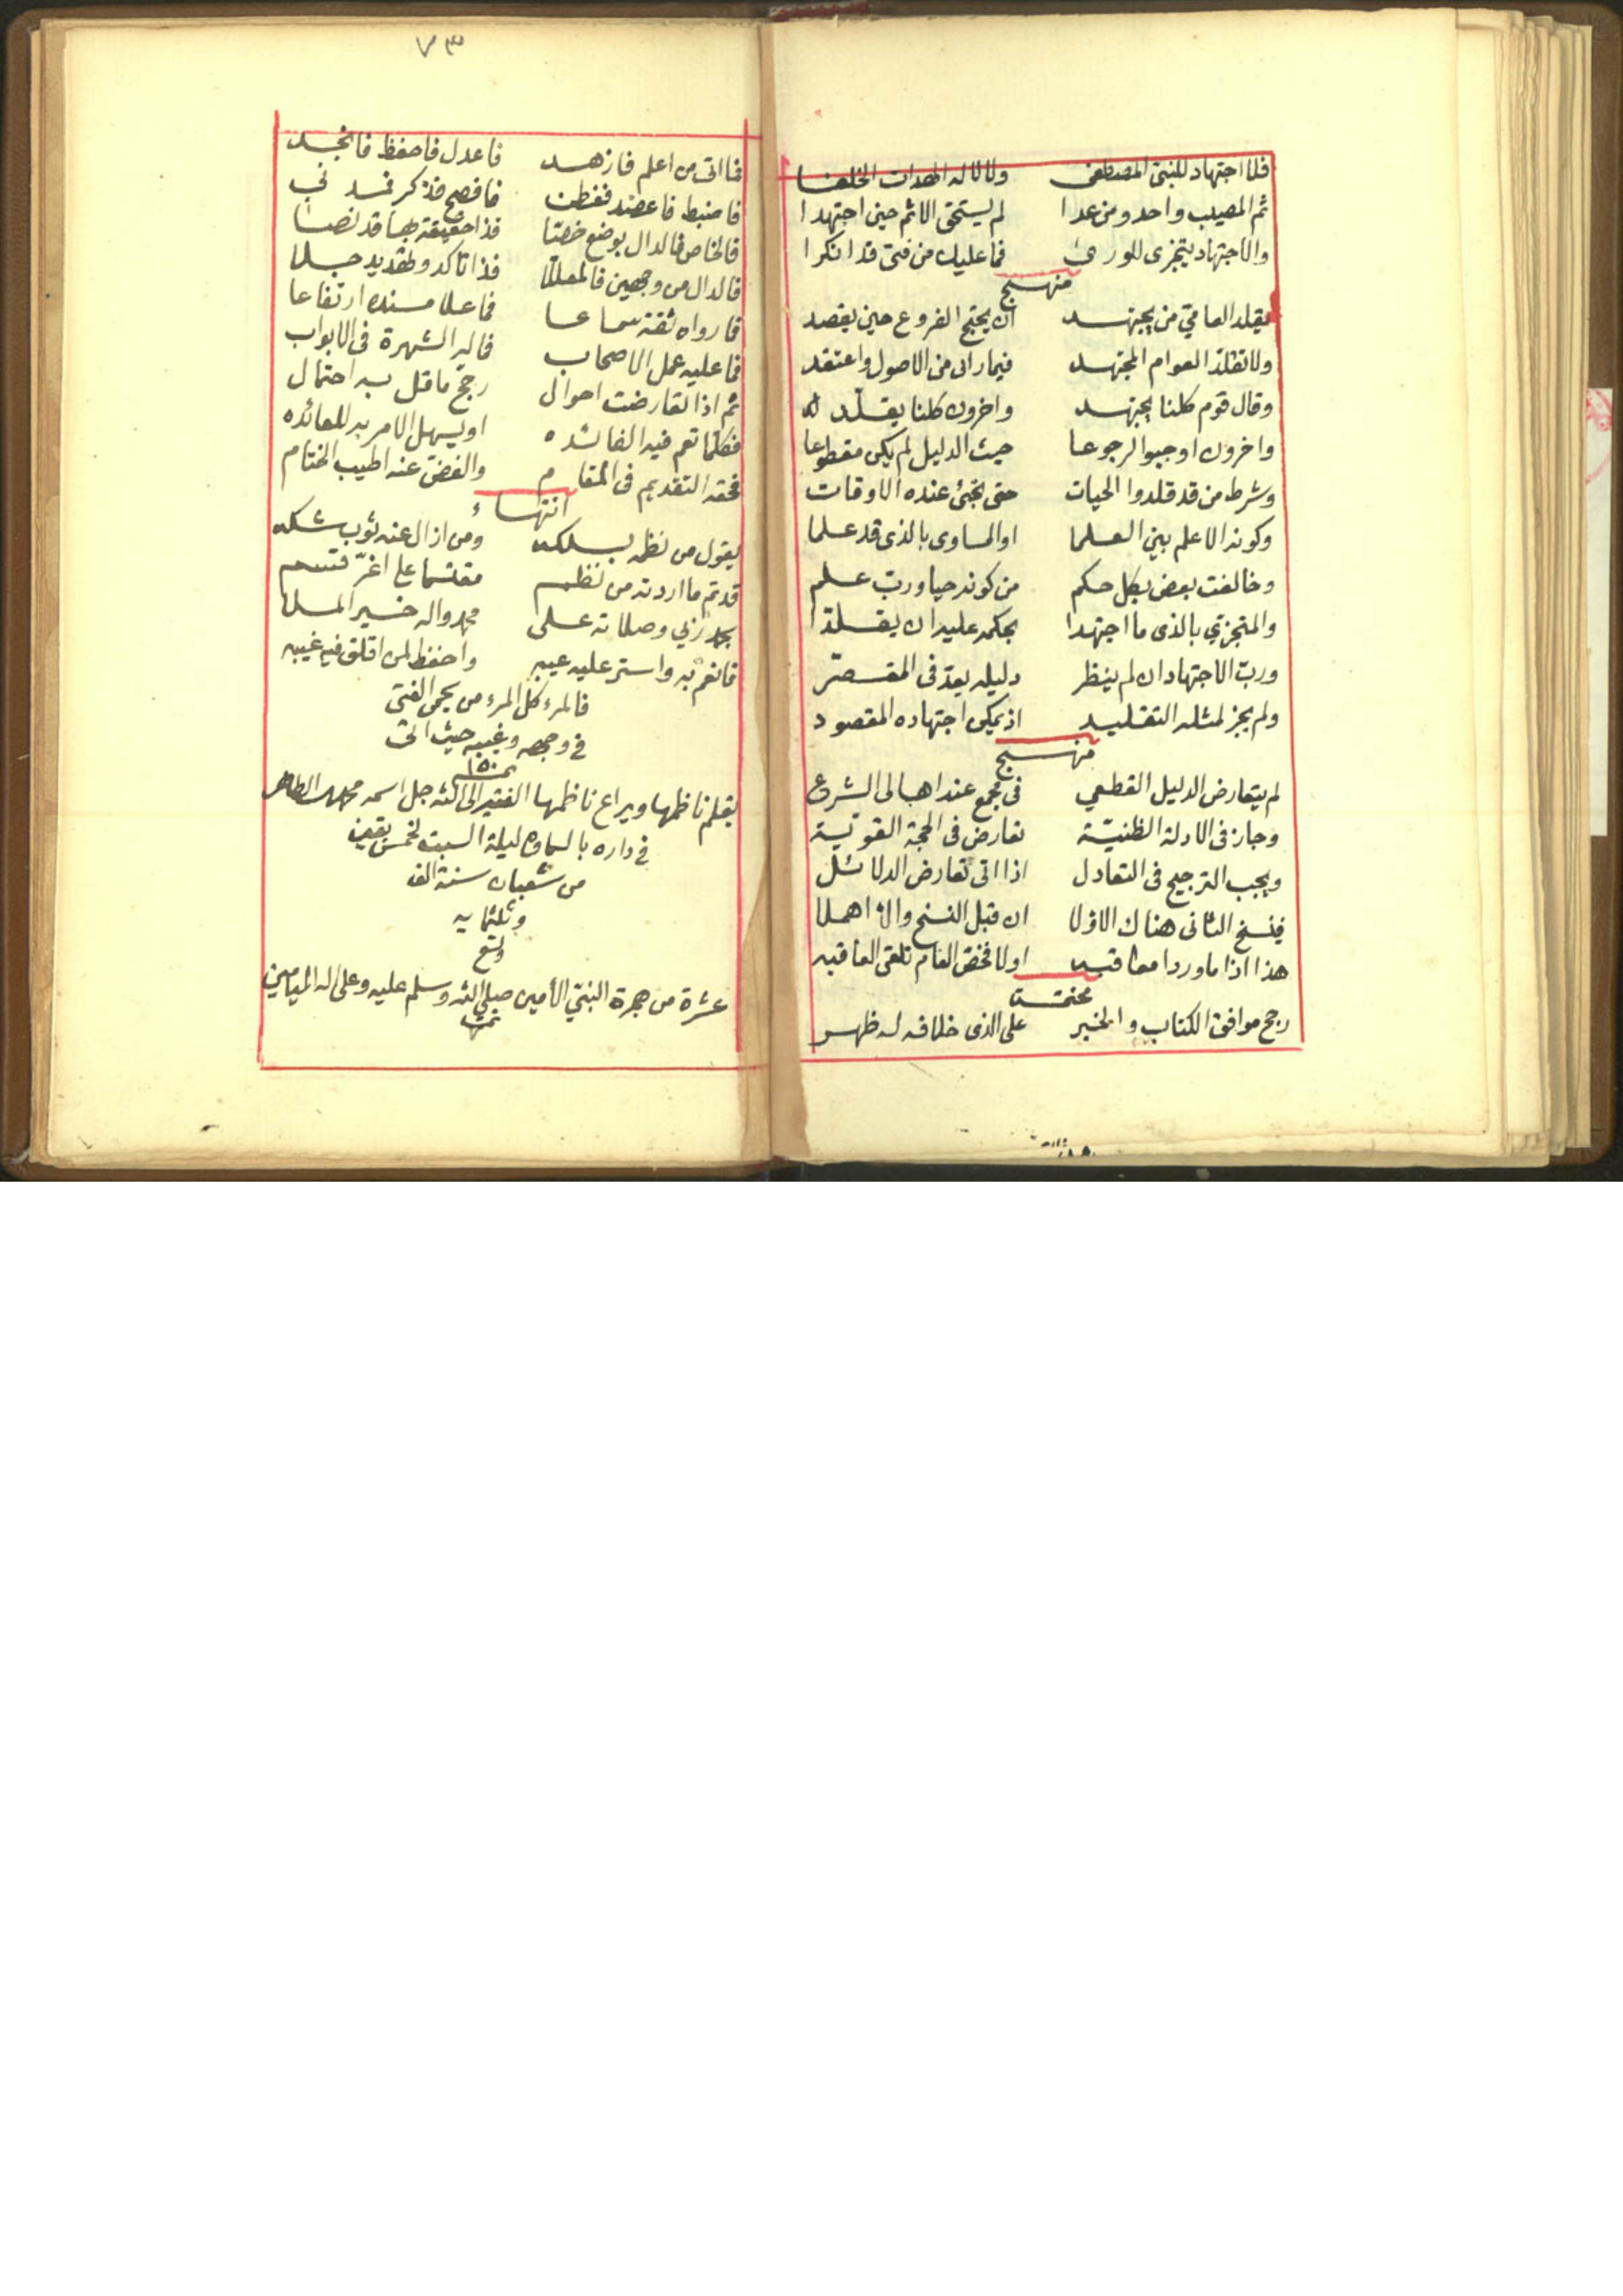 فلا اجتهاد للنبي المصطفى ولا لاله الهدات الخلفا
ثم المصيب واحد ومن عدا لم يستحق الاثم حين اجتهدا
والاجتهاد يتجزى للورى فما عليك من فتى قد انكرا
منهج
يقلد العامي من يجتهد ان يحتج الفروع حين يقصد
ولا تقلد العوام المجتهد فيما راى من الاصول واعتقد
وقال قوم كلنا يجتهد واخرون كلنا يقلد
واخرون اوجبوا الرجوعا حيث الدليل لم يكن مقطوعا
وشرط من قد قلدوا الحيات حتى تجئ عنده الاوقات
وكونه الاعلم بين العلما او المساوى بالذى قد علما
وخالفت بعض بكل حكم من كونه حيا ورب علم
والمتجزي بالذى ما اجتهدا بحكمه عليه ان يقلدا
ورب الاجتهاد ان لم ينظر دليله يعد فى المقصر
ولم يجز لمثله التقليد اذ يمكن اجتهاده المقصود
منهج
لم يتعارض الدليل القطعي فى مجمع عند اهالى الشرع
وجاز فى الادلة الظنية تعارض فى الحجة القوية
ويجب الترجيح فى التعادل اذا اتى تعارض الدلائل
فينسخ الثانى هناك الاولا ان قبل النسخ والا اهملا
هذا اذا ما وردا معاقبه اولا فخص العام تلقى العاقبه
رجح موافق الكتاب والخبر على الذى خلافه له ظهر
٧٣
فما اتى من اعلم فازهد فاعدل فاحفظ فانجد
فاضبط فاعضد ففطن فافصح فذكر
فالخاص فالدال بوضع خصا فذا حقيقة بها قد نصا
فالدال من وجهين فالمعللا فذا تاكد وتهديد جلا
فما رواه ثقة سماعا فما علا مسنده ارتفاعا
فما عليه عمل الاصحاب فما له الشهرة فى الابواب
ثم اذا تعارضت احوال رجح ما قل به احتمال
فكلما تعم فيه الفائده او يسهل الامر به للعائده
فحقه التقديم فى المقام والغض عنه اطيب الختام
انتهاء
يقول من نظمه بسلكه ومن ازال عنه ثوب شكه
قد تم ما اردته من نظم مقتسما على اغر قسم
بحمد ربي وصلاته على محمد واله خير الملا
فانعم به واستر عليه عيبه واحفظ لمن اقلق فيه غيبه
فالمرء كل المرء من يحمى الفتى
في وجهه وغيبه حيث اتى
تمت ١٥٠
بقلم ناظمها ويراع ناظمها الفقير الى الله جل اسمه محمد الطاهر
في داره بالسماوه ليلة السبت لخمس بقين
من شعبان سنة الف
وثلثمايه
وتسع
عشرة من هجرة النبي الأمين صلى الله وسلم عليه وعلى اله الميامين
تمت